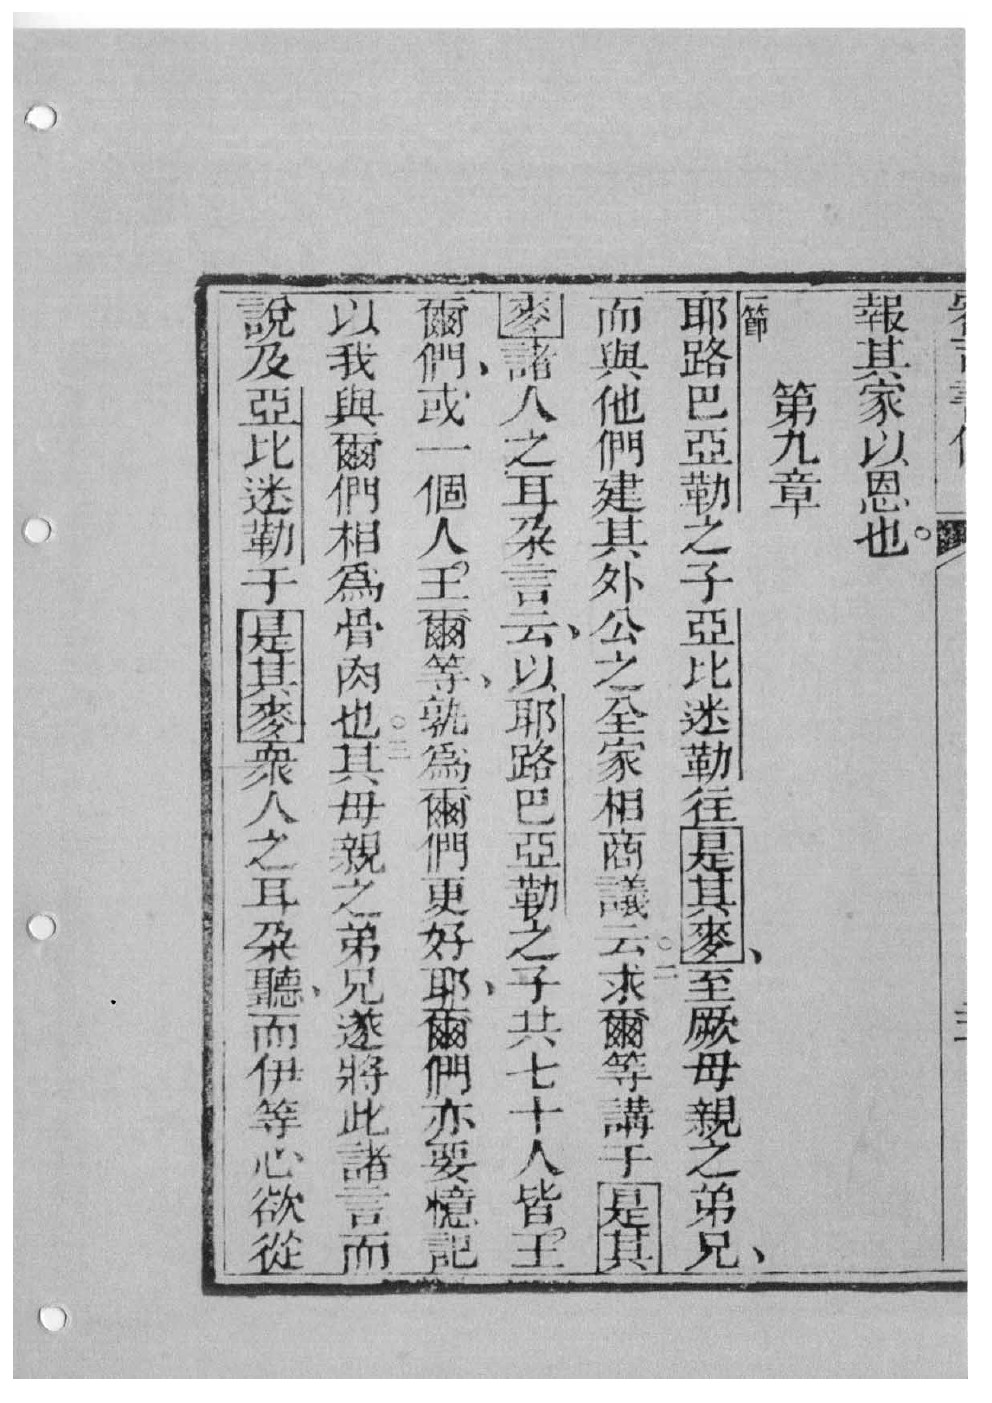 報其家以恩也。
第九章
一節
耶路巴亞勒之子亞比迷勒往是其麥、至厥母親之弟兄、
而與他們建其外公之全家相商議云○二求爾等講于是其
麥諸人之耳朶言云、以耶路巴亞勒之子共七十人皆王
爾們、或一個人王爾等、孰爲爾們更好耶、爾們亦要憶記
以我與爾們相爲骨肉也○三其母親之弟兄遂將此諸言而
說及亞比迷勒于是其麥衆人之耳朶聽、而伊等心欲從